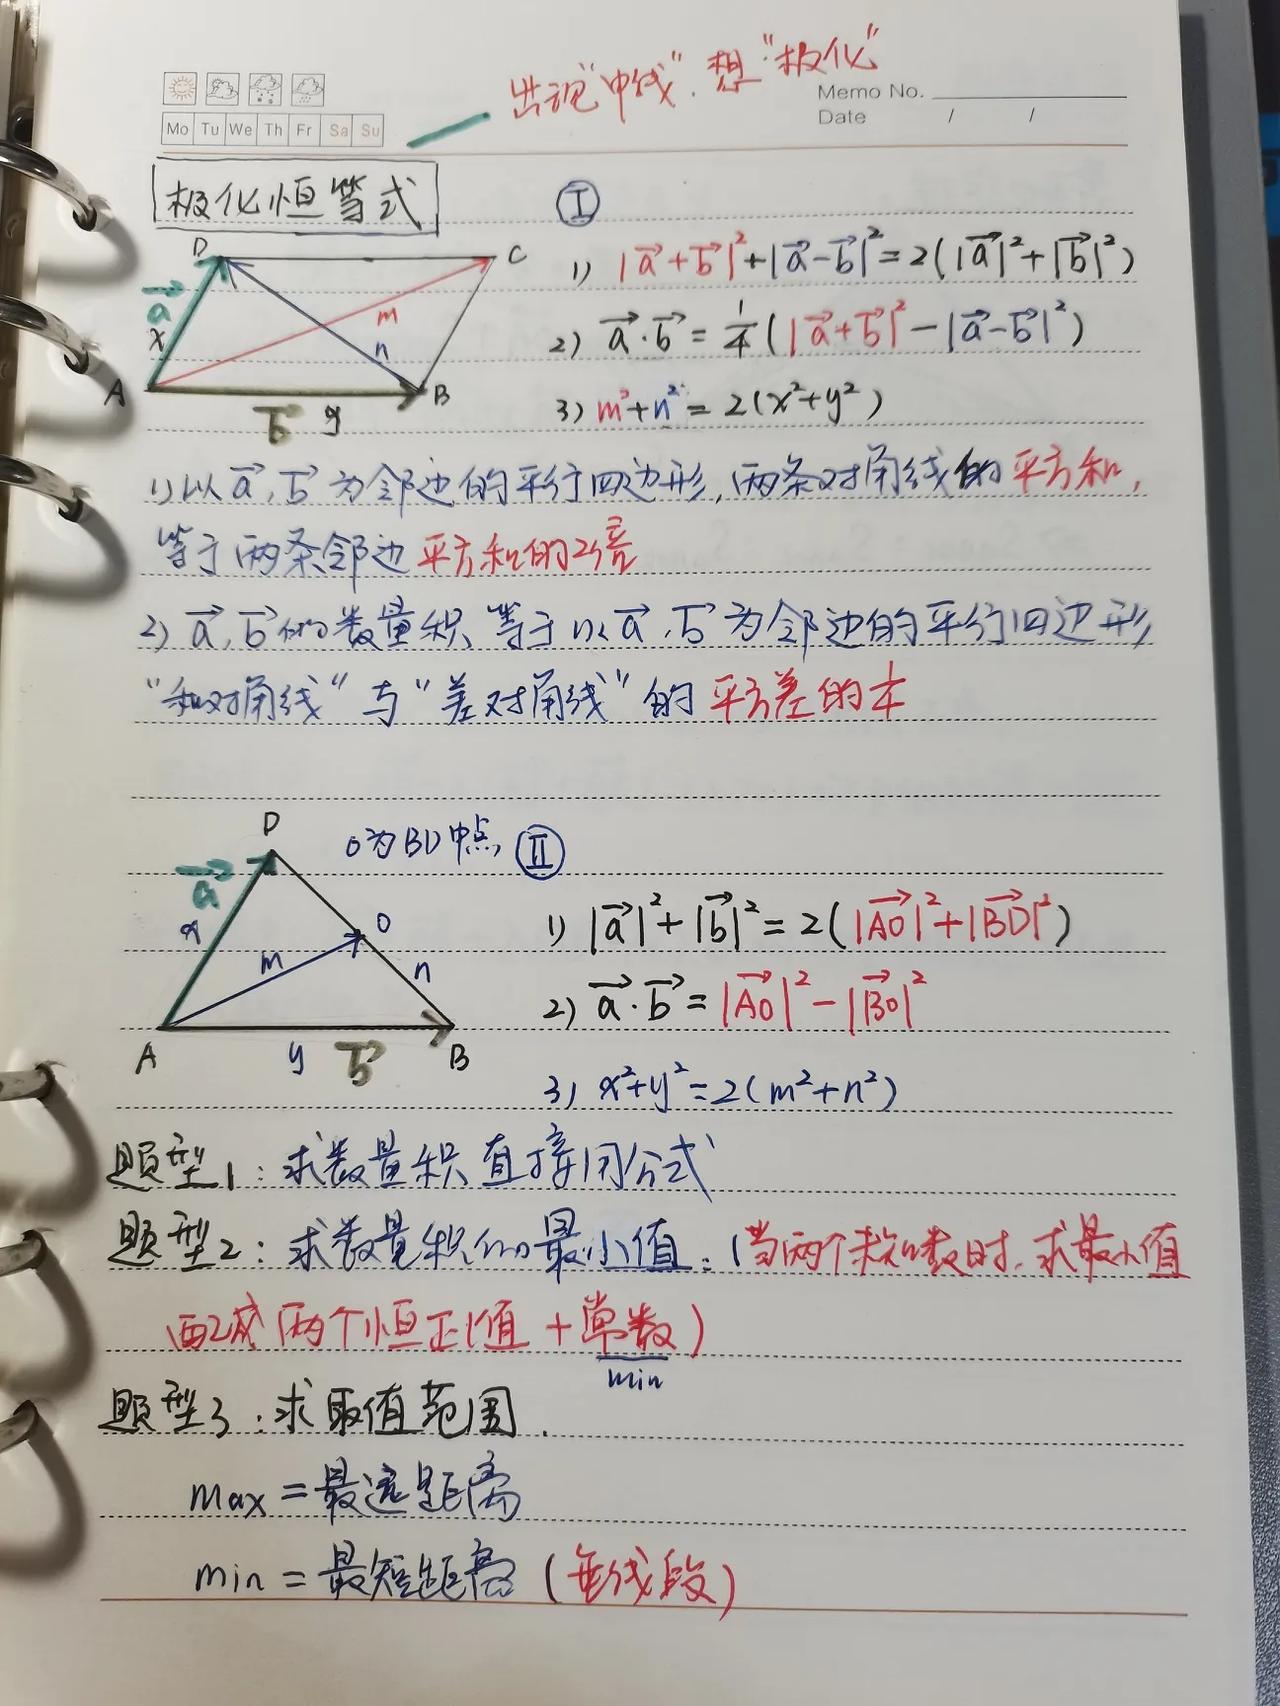 出现"中线",想"极化"
Memo No.
Mo Tu We Th Fr Sa Su
Date / /
极化恒等式
Ⅰ
D C
a x m n
A b y B
1) |a+b|²+|a-b|²=2(|a|²+|b|²)
2) a·b=1/4(|a+b|²-|a-b|²)
3) m²+n²=2(x²+y²)
1)以a,b为邻边的平行四边形,两条对角线的平方和,
等于两条邻边平方和的2倍
2) a,b的数量积等于以a,b为邻边的平行四边形
"和对角线"与"差对角线"的平方差的本
D O为BD中点 Ⅱ
a x m O n
A y b B
1) |a|²+|b|²=2(|AO|²+|BD|²)
2) a·b=|AO|²-|BO|²
3) x²+y²=2(m²+n²)
题型1:求数量积直接用公式
题型2:求数量积的最小值:(当两个未知数时,求最小值
配成两个恒正值+常数)
min
题型3:求取值范围.
max=最远距离
min=最短距离(垂线段)